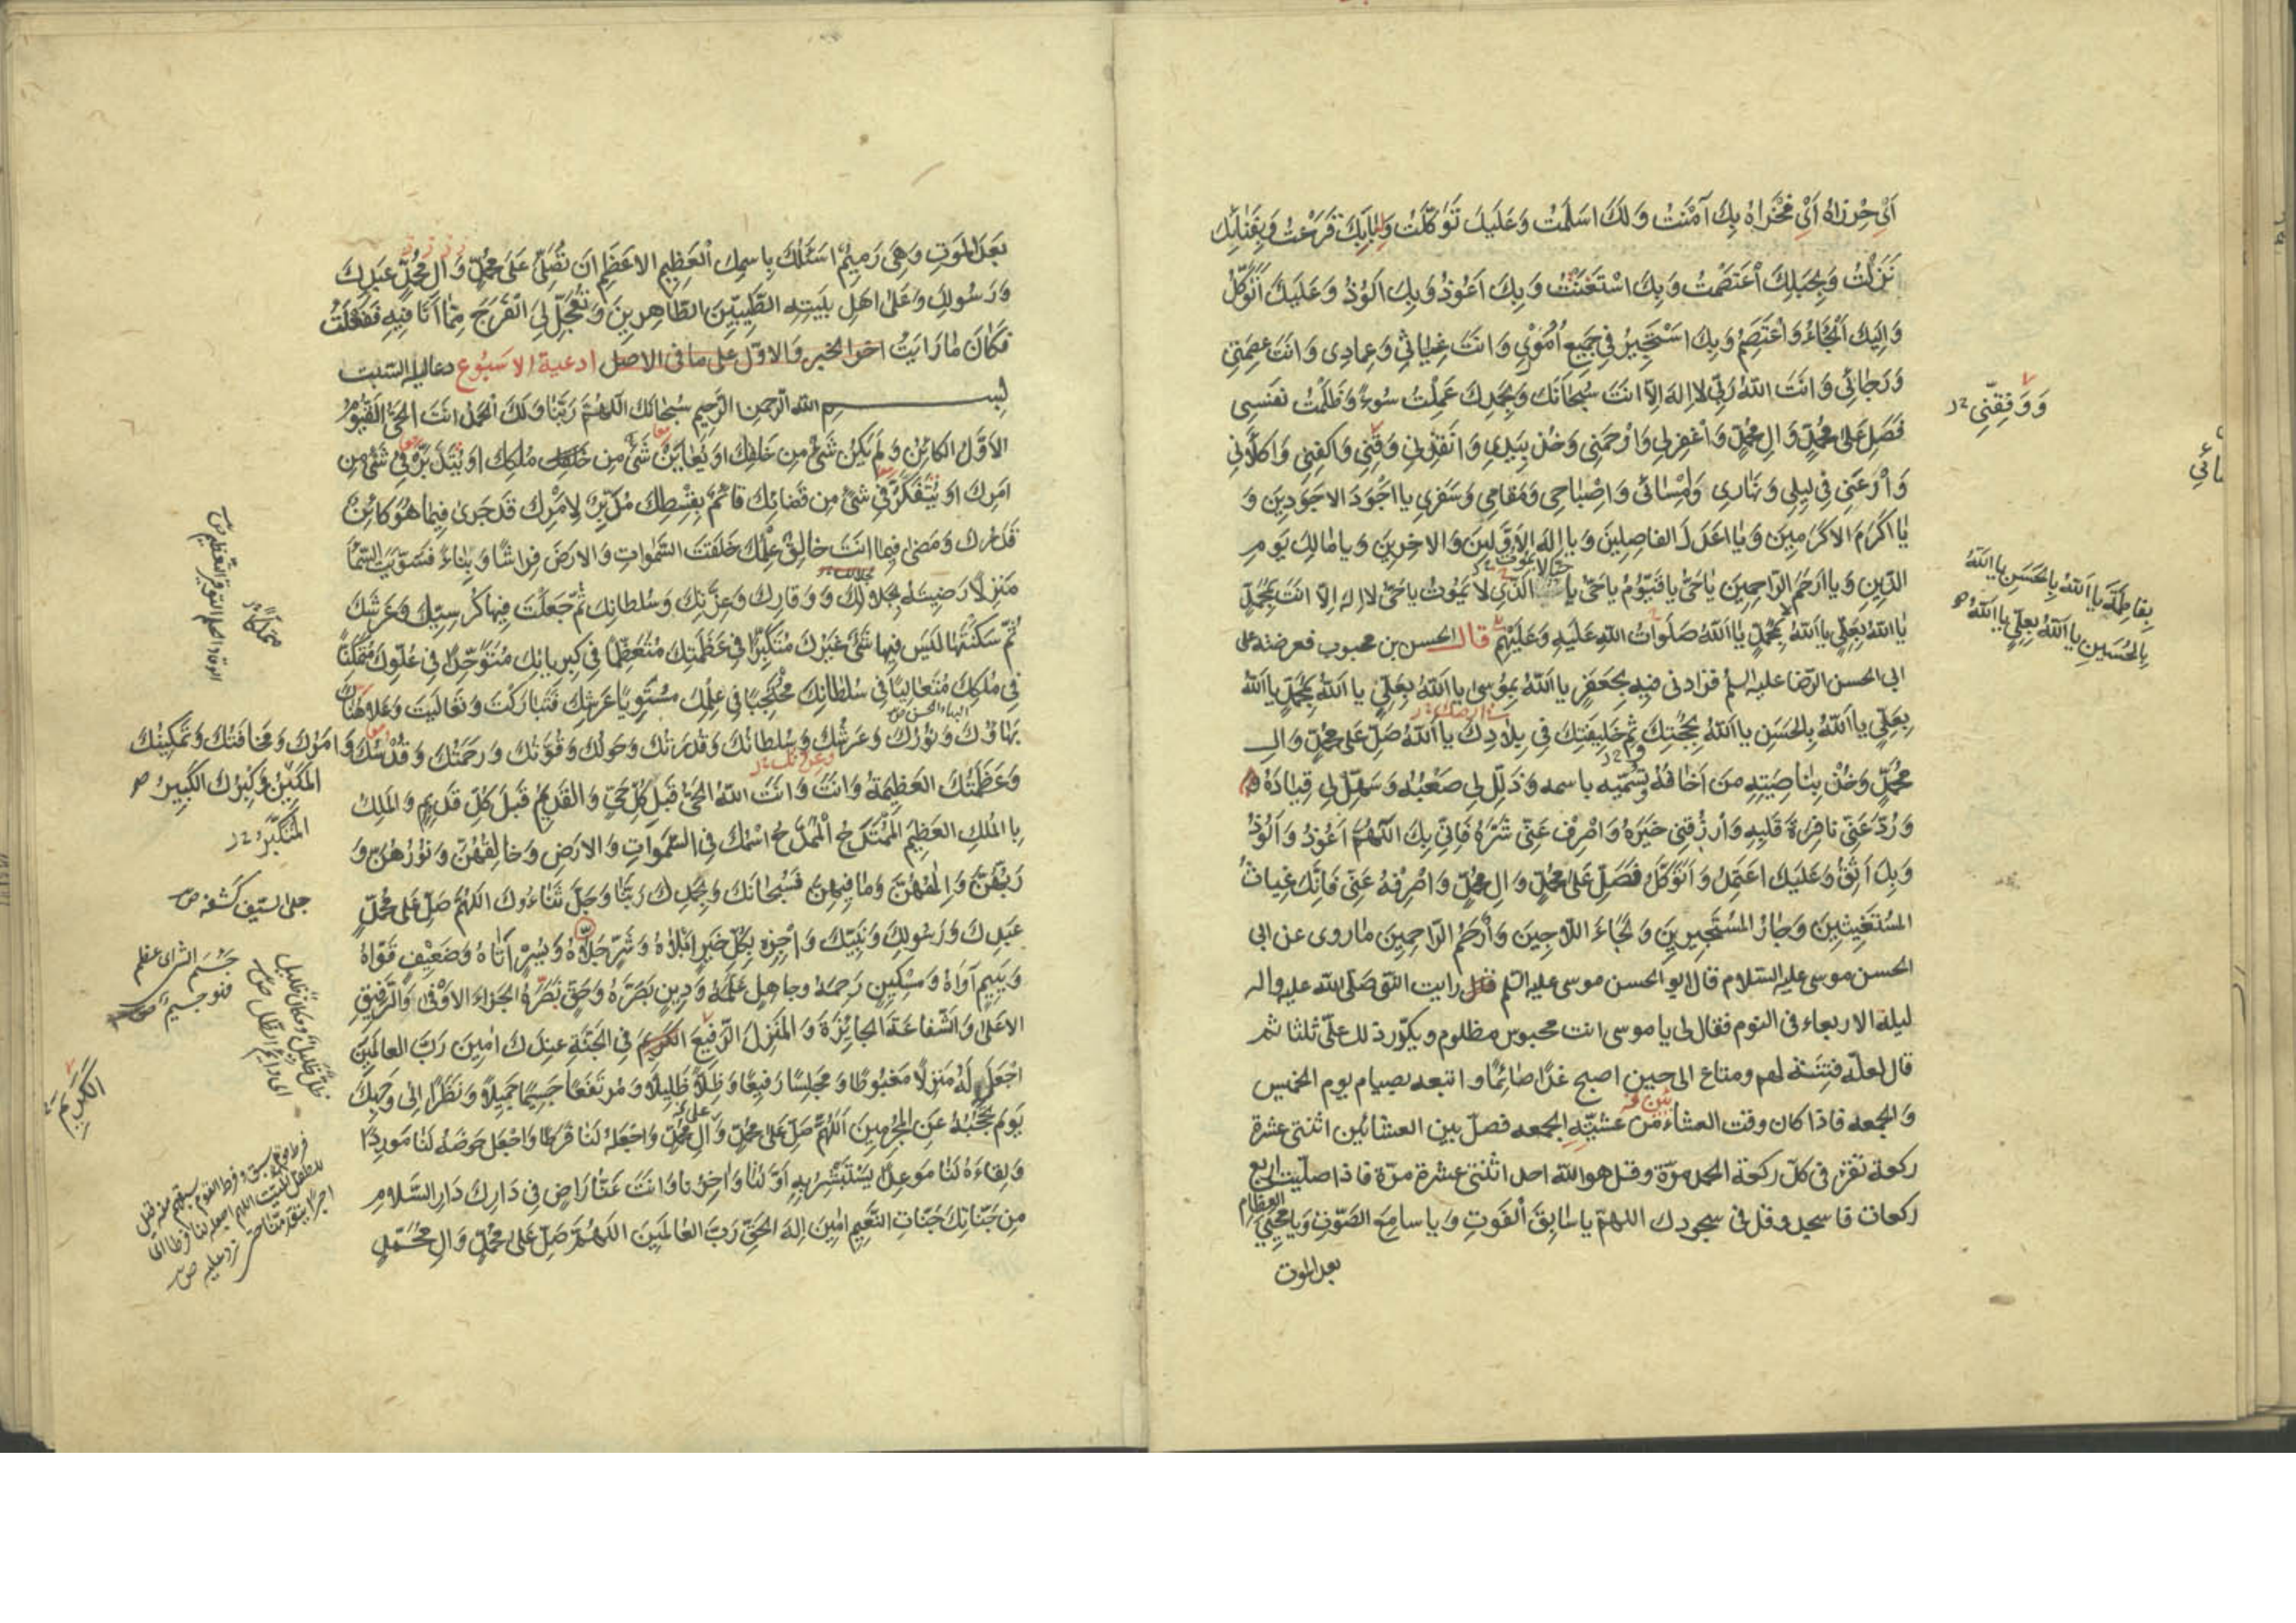 اَيْ حِرْزَاهُ اَيْ مَفْخَرَاهُ بِكَ آمَنْتُ وَلَكَ اَسْلَمْتُ وَعَلَيْكَ تَوَكَّلْتُ وَلِبَابِكَ قَرَعْتُ وَبِفَنَائِكَ
نَزَلْتُ وَبِحَبْلِكَ اعْتَصَمْتُ وَبِكَ اسْتَغَثْتُ وَبِكَ اَعُوذُ وَبِكَ اَلُوذُ وَعَلَيْكَ اَتَوَكَّلُ
وَاِلَيْكَ اَلْجَاءُ وَاَعْتَصِمُ وَبِكَ اَسْتَجِيرُ فِي جَمِيعِ اُمُورِي وَاَنْتَ غِيَاثِي وَعِمَادِي وَاَنْتَ عِصْمَتِي
وَرَجَائِي وَاَنْتَ اللّهُ رَبِّي لا اِلهَ اِلاّ اَنْتَ سُبْحَانَكَ وَبِحَمْدِكَ عَمِلْتُ سُوءً وَظَلَمْتُ نَفْسِي
فَصَلِّ عَلَى مُحَمَّدٍ وَالِ مُحَمَّدٍ وَاغْفِرْ لِي وَارْحَمْنِي وَخُذْ بِيَدِي وَانْقِذْنِي وَقِنِي وَاكْفِنِي وَاكْلأْنِي
وَارْعَنِي فِي لَيْلِي وَنَهَارِي وَاِمْسَائِي وَاِصْبَاحِي وَمَقَامِي وَسَفَرِي يا اَجْوَدَ الاَجْوَدِينَ وَ
يَا اَكْرَمَ الاَكْرَمِينَ وَيَا اَعْدَلَ الفَاصِلِينَ وَيا اِلهَ الاَوَّلِينَ وَالاخِرِينَ وَيا مَالِكَ يَوْمِ
الدِّينِ وَيا اَرْحَمَ الرَّاحِمِينَ يا حَيُّ يا قَيُّومُ يا حَيُّ يا الَّذِي لا يَمُوتُ يا حَيُّ لا اِلهَ اِلاّ اَنْتَ بِمُحَمَّدٍ
يا اَللّهُ بِعَلِيٍّ يا اَللّهُ بِمُحَمَّدٍ يا اَللّهُ صَلَوَاتُ اللّهِ عَلَيْهِ وَعَلَيْهِمْ قال الحسن بن محبوب فعرضته على
ابى الحسن الرضا عليه السلم فزادنى فيه بِجَعْفَرٍ يا اَللّهُ بِمُوسى يا اَللّهُ بِعَلِيٍّ يا اَللّهُ بِمُحَمَّدٍ يا اَللّهُ
بِعَلِيٍّ يا اَللّهُ بِالحَسَنِ يا اَللّهُ بِحُجَّتِكَ وَخَلِيفَتِكَ فِي بِلادِكَ يا اَللّهُ صَلِّ عَلَى مُحَمَّدٍ وَالِ
مُحَمَّدٍ وَخُذْ بِنَاصِيَةِ مَنْ اَخَافُهُ وتُسَمّيه باسمه وَذَلِّلْ لِي صَعْبَهُ وَسَهِّلْ لِي قِيَادَهُ
وَرُدَّ عَنِّي نَافِرَةَ قَلْبِهِ وَارْزُقْنِي خَيْرَهُ وَاصْرِفْ عَنِّي شَرَّهُ فَاِنِّي بِكَ اللّهُمَّ اَعُوذُ وَاَلُوذُ
وَبِكَ اَثِقُ وَعَلَيْكَ اَعْتَمِدُ وَاَتَوَكَّلُ فَصَلِّ عَلَى مُحَمَّدٍ وَالِ مُحَمَّدٍ وَاصْرِفْهُ عَنِّي فَاِنَّكَ غِيَاثُ
المُسْتَغِيثِينَ وَجَارُ المُسْتَجِيرِينَ وَلَجَاءُ اللاّجِينَ وَاَرْحَمُ الرَّاحِمِينَ ما روى عن ابى
الحسن موسى عليه السلام قال ابو الحسن موسى عليه السلم رايت النبي صلى الله عليه واله
ليلة الاربعاء فى النوم فقال لى يا موسى انت محبوس مظلوم ويكرّر ذلك علىّ ثلثا ثم
قال لعلّه فتنة لهم ومتاع الى حين اصبح غدًا صائمًا واتبعه بصيام يوم الخميس
والجمعه فاذا كان وقت العشاء من عشيّة الجمعه فصلّ بين العشائين اثنتى عشرة
ركعة تقرء فى كلّ ركعة الحمد مرّة وقل هو الله احد اثنتى عشرة مرّة فاذا صلّيت اربع
ركعات فاسجد وقل فى سجودك اللهمّ يا سَابِقَ الْفَوتِ وَيا سامِعَ الصَّوْتِ وَيا مُحْيِيَ العظام
بعد الموت
وَوَفِّقْنِي
بِفَاطِمَةَ يا اَللّهُ بِالحَسَنِ يا اَللّهُ
بِالحُسَيْنِ يا اَللّهُ بِعَلِيٍّ يا اَللّهُ
بَعْدَ المَوْتِ وَهِيَ رَمِيمٌ اَسْئَلُكَ بِاسْمِكَ الْعَظِيمِ الاَعْظَمِ اَنْ تُصَلِّيَ عَلَى مُحَمَّدٍ وَالِ مُحَمَّدٍ عَبْدِكَ
وَرَسُولِكَ وَعَلَى اَهْلِ بَيْتِهِ الطَّيِّبِينَ الطَّاهِرِينَ وَتُعَجِّلَ لِيَ الْفَرَجَ مِمَّا اَنَا فِيهِ فَفَعَلْتُ
فَكَانَ مَا رَايْتُ اخر الخبر والاوّل على ما فى الاصل ادعية الاسبوع دعاء ليلة السبت
بسم الله الرحمن الرحيم سُبْحَانَكَ اللّهُمَّ رَبَّنَا وَلَكَ الْحَمْدُ اَنْتَ الْحَيُّ الْقَيُّومُ
الاَوَّلُ الكَائِنُ وَلَمْ يَكُنْ شَيْءٌ مِنْ خَلْقِكَ اَوْ يُعَايَنَ شَيْءٌ مِنْ مُلْكِكَ اَوْ يُتَدَبَّرَ فِي شَيْءٍ مِنْ
اَمْرِكَ اَوْ يُتَفَكَّرَ فِي شَيْءٍ مِنْ قَضَائِكَ قَائِمٌ بِقِسْطِكَ مُدَبِّرٌ لاَمْرِكَ قَدْ جَرى فِيمَا هُوَ كَائِنٌ
قَدَرُكَ وَمَضى فِيمَا اَنْتَ خَالِقٌ عِلْمُكَ خَلَقْتَ السَّمواتِ وَالاَرْضَ فِرَاشًا وَبِنَاءً فَسَوَّيْتَ السَّمَاءَ
مَنْزِلاً رَضِيتَهُ بِجَلالِكَ وَوَقَارِكَ وَعِزَّتِكَ وَسُلْطَانِكَ ثُمَّ جَعَلْتَ فِيهَا كُرْسِيَّكَ وَعَرْشَكَ
ثُمَّ سَكَنْتَهَا لَيْسَ فِيهَا شَيْءٌ غَيْرُكَ مُتَكَبِّرًا فِي عَظَمَتِكَ مُتَعَظِّمًا فِي كِبْرِيَائِكَ مُتَوَحِّدًا فِي عُلُوِّكَ مُتَمَكِّنًا
فِي مُلْكِكَ مُتَعَالِيًا فِي سُلْطَانِكَ مُحْتَجِبًا فِي عِلْمِكَ مُسْتَوِيًا عَرْشَكَ فَتَبَارَكْتَ وَتَعَالَيْتَ وَعَلا هُنَاكَ
بَهَاؤُكَ وَنُورُكَ وَعَرْشُكَ وَسُلْطَانُكَ وَقُدْرَتُكَ وَحَوْلُكَ وَقُوَّتُكَ وَرَحْمَتُكَ وَقُدْسُكَ وَاَمْرُكَ وَمَخَافَتُكَ وَتَمْكِينُكَ
المَكِينُ وَكِبْرُكَ الكَبِيرُ
وَعَظَمَتُكَ العَظِيمَةُ وَاَنْتَ وَاَنْتَ اللّهُ الحَيُّ قَبْلَ كُلِّ حَيٍّ وَالقَدِيمُ قَبْلَ كُلِّ قَدِيمٍ وَالمَلِكُ
بِالمُلْكِ العَظِيمِ المُمْتَدِحُ الْمُمَدَّحُ اسْمُكَ فِي السَّمواتِ وَالاَرْضِ وَخَالِقُهُنَّ وَنُورُهُنَّ وَ
رَبُّهُنَّ وَاِلهُهُنَّ وَمَا فِيهِنَّ فَسُبْحَانَكَ وَبِحَمْدِكَ رَبَّنَا وَجَلَّ ثَنَاءُكَ اللّهُمَّ صَلِّ عَلَى مُحَمَّدٍ
عَبْدِكَ وَرَسُولِكَ وَنَبِيِّكَ وَاجْزِهِ بِكُلِّ خَيْرٍ اَبْلاهُ وَشَرٍّ جَلاّهُ وَيُسْرٍ اَتَاهُ وَضَعِيفٍ قَوَّاهُ
وَيَتِيمٍ آوَاهُ وَمِسْكِينٍ رَحِمَهُ وَجَاهِلٍ عَلَّمَهُ وَدِينٍ بَصَّرَهُ وَحَقٍّ نَصَرَهُ الجَزَاءَ الاَوْفى وَالرَّفِيقَ
الاَعْلى وَالشَّفَاعَةَ الجَائِزَةَ وَالمَنْزِلَ الرَّفِيعَ فِي الجَنَّةِ عِنْدَكَ امِينَ رَبَّ العَالَمِينَ
اجْعَلْ لَهُ مَنْزِلاً مَغْبُوطًا وَمَجْلِسًا رَفِيعًا وَظِلاًّ ظَلِيلاً وَمُرْتَفَعًا جَسِيمًا جَمِيلاً وَنَظَرًا اِلى وَجْهِكَ
يَوْمَ تَحْجُبُهُ عَنِ المُجْرِمِينَ اَللّهُمَّ صَلِّ عَلَى مُحَمَّدٍ وَآلِ مُحَمَّدٍ وَاجْعَلْهُ لَنَا فَرَطًا وَاجْعَلْ حَوْضَهُ لَنَا مَوْرِدًا
وَلِقَاءَهُ لَنَا مَوْعِدًا يَسْتَبْشِرُ بِهِ اَوَّلُنَا وَاخِرُنَا وَاَنْتَ عَنَّا رَاضٍ فِي دَارِكَ دَارِ السَّلامِ
مِنْ جَنَّاتِكَ جَنَّاتِ النَّعِيمِ امِينَ اِلهَ الحَقِّ رَبَّ العَالَمِينَ اللّهُمَّ صَلِّ عَلَى مُحَمَّدٍ وَالِ مُحَمَّدٍ
المُتَكَبِّرُ
جلى السيف كشفه
الكَرِيمَ